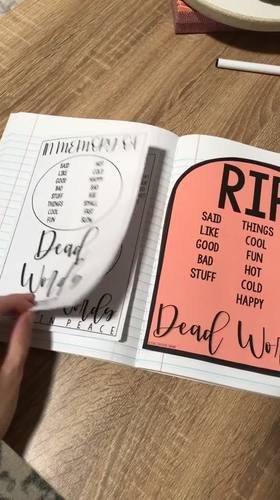 IN MEMORY OF
SAID HOT
LIKE COLD
GOOD HAPPY
BAD SAD
STUFF BIG
THINGS SMALL
COOL FAST
FUN SLOW
Dead
Words
IN PEACE
RIP
SAID THINGS
LIKE COOL
GOOD FUN
BAD HOT
STUFF COLD
HAPPY
Dead Wo